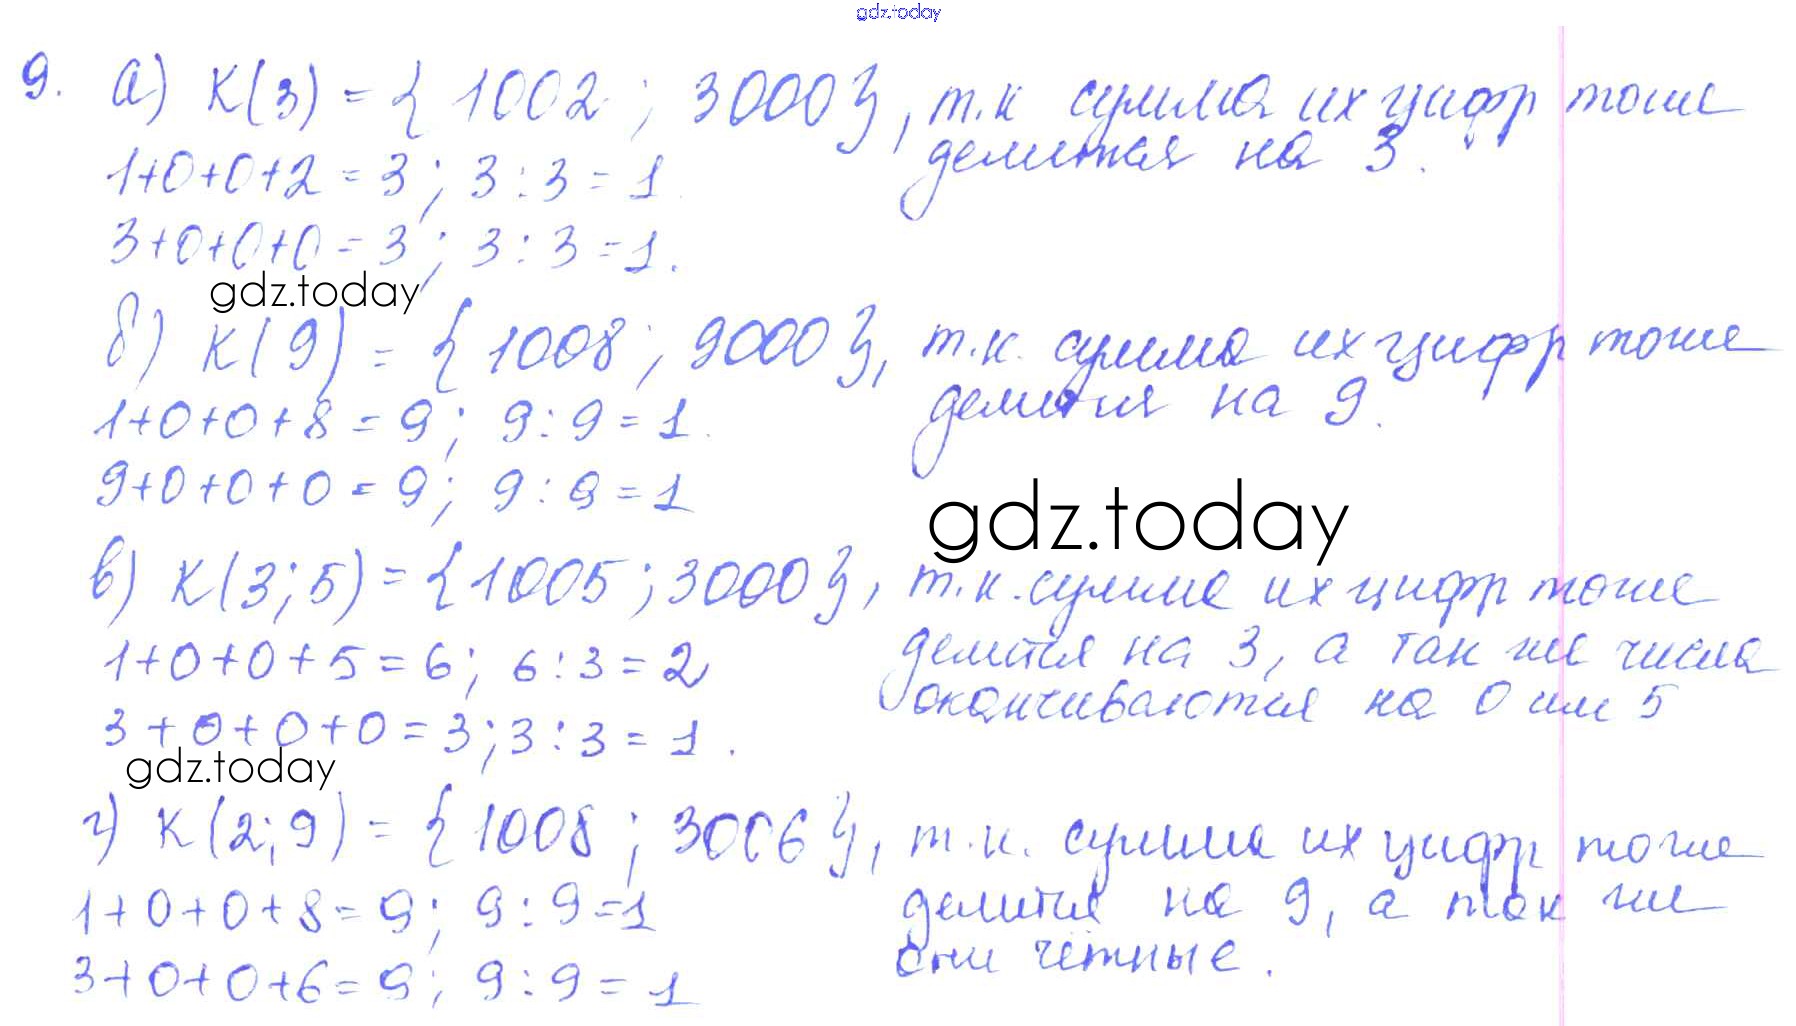 gdz.today
9. а) К(3) = { 1002 ; 3000 }, т.к сумма их цифр тоже
делится на 3.
1+0+0+2 = 3 ; 3 : 3 = 1.
3+0+0+0 = 3 ; 3 : 3 = 1.
gdz.today
б) К(9) = { 1008 ; 9000 }, т.к. сумма их цифр тоже
делится на 9.
1+0+0+8 = 9 ; 9 : 9 = 1.
9+0+0+0 = 9 ; 9 : 9 = 1
gdz.today
в) К(3;5) = { 1005 ; 3000 }, т.к. сумма их цифр тоже
делится на 3, а так же числа
оканчиваются на 0 или 5
1+0+0+5 = 6 ; 6 : 3 = 2
3+0+0+0 = 3 ; 3 : 3 = 1.
gdz.today
г) К(2;9) = { 1008 ; 3006 }, т.к. сумма их цифр тоже
делится на 9, а так же
они чётные.
1+0+0+8 = 9 ; 9 : 9 = 1
3+0+0+6 = 9 ; 9 : 9 = 1